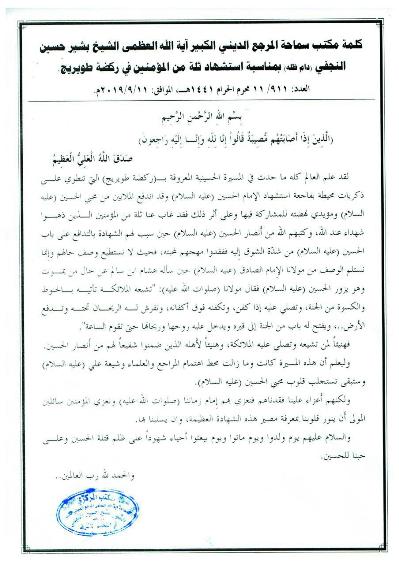 كلمة مكتب سماحة المرجع الديني الكبير آية الله العظمى الشيخ بشير حسين
النجفي (دام ظله) بمناسبة استشهاد ثلة من المؤمنين في ركضة طويريج
العدد: ٩١١/ ١١ محرم الحرام ١٤٤١هـ، الموافق: ٢٠١٩/٩/١١م.
بِسْمِ اللهِ الرَّحْمنِ الرَّحِيمِ
(الَّذِينَ إِذَا أَصَابَتْهُم مُّصِيبَةٌ قَالُوا إِنَّا لِلَّهِ وَإِنَّا إِلَيْهِ رَاجِعُونَ)
صَدَقَ اللَّهُ الْعَلِيُّ الْعَظِيمُ
لقد علم العالم كله ما حدث في المسيرة الحسينية المعروفة بـ(ركضة طويريج) التي تنطوي على
ذكريات محيطة بفاجعة استشهاد الإمام الحسين (عليه السلام) وقد اندفع الملايين من محبي الحسين (عليه
السلام) ومؤيدي نهضته للمشاركة فيها وعلى أثر ذلك فقد غاب عنا ثلة من المؤمنين الذين ذهبوا
شهداء عند الله، وكتبهم الله من أنصار الحسين (عليه السلام) حين سيب لهم الشهادة بالتدافع على باب
الحسين (عليه السلام) من شدّة الشوق إليه ففقدوا مهجتهم لمحبته، فحيث لا نستطيع وصف حالهم وإنما
نستلم الوصف من مولانا الإمام الصادق (عليه السلام) حين سأله هشام ابن سالم عن حال من يموت
وهو يزور الحسين (عليه السلام) فقال مولانا (صلوات الله عليه): "تشيعه الملائكة تأتيه بالحنوط
والكسوة من الجنة، وتصلي عليه إذا كفن، وتكفنه فوق أكفانه، وتفرش له الريحان تحته وتدفع
الأرض... ويفتح له باب من الجنة إلى قبره ويدخل عليه روحها وريحانها حتى تقوم الساعة".
فهنيئاً لمن تشيعه وتصلي عليه الملائكة، وهنيئاً لأهله الذين ضمنوا شفيعاً لهم من أنصار الحسين.
وليعلم أن هذه المسيرة كانت وما زالت محط اهتمام المراجع والعلماء وشيعة علي (عليه السلام)
وستبقى تستجلب قلوب محبي الحسين (عليه السلام).
ولكنهم أعزاء علينا فقدناهم فنعزي بهم إمام زماننا (صلوات الله عليه) ونعزي المؤمنين سائلين
المولى أن ينور قلوبنا بمعرفة مصير هذه الشهادة العظيمة، وان يسلينا بها.
والسلام عليهم يوم ولدوا ويوم ماتوا ويوم يبعثوا أحياء شهوداً على ظلم قتلة الحسين وعلى
حبنا للحسين.
والحمد لله رب العالمين..